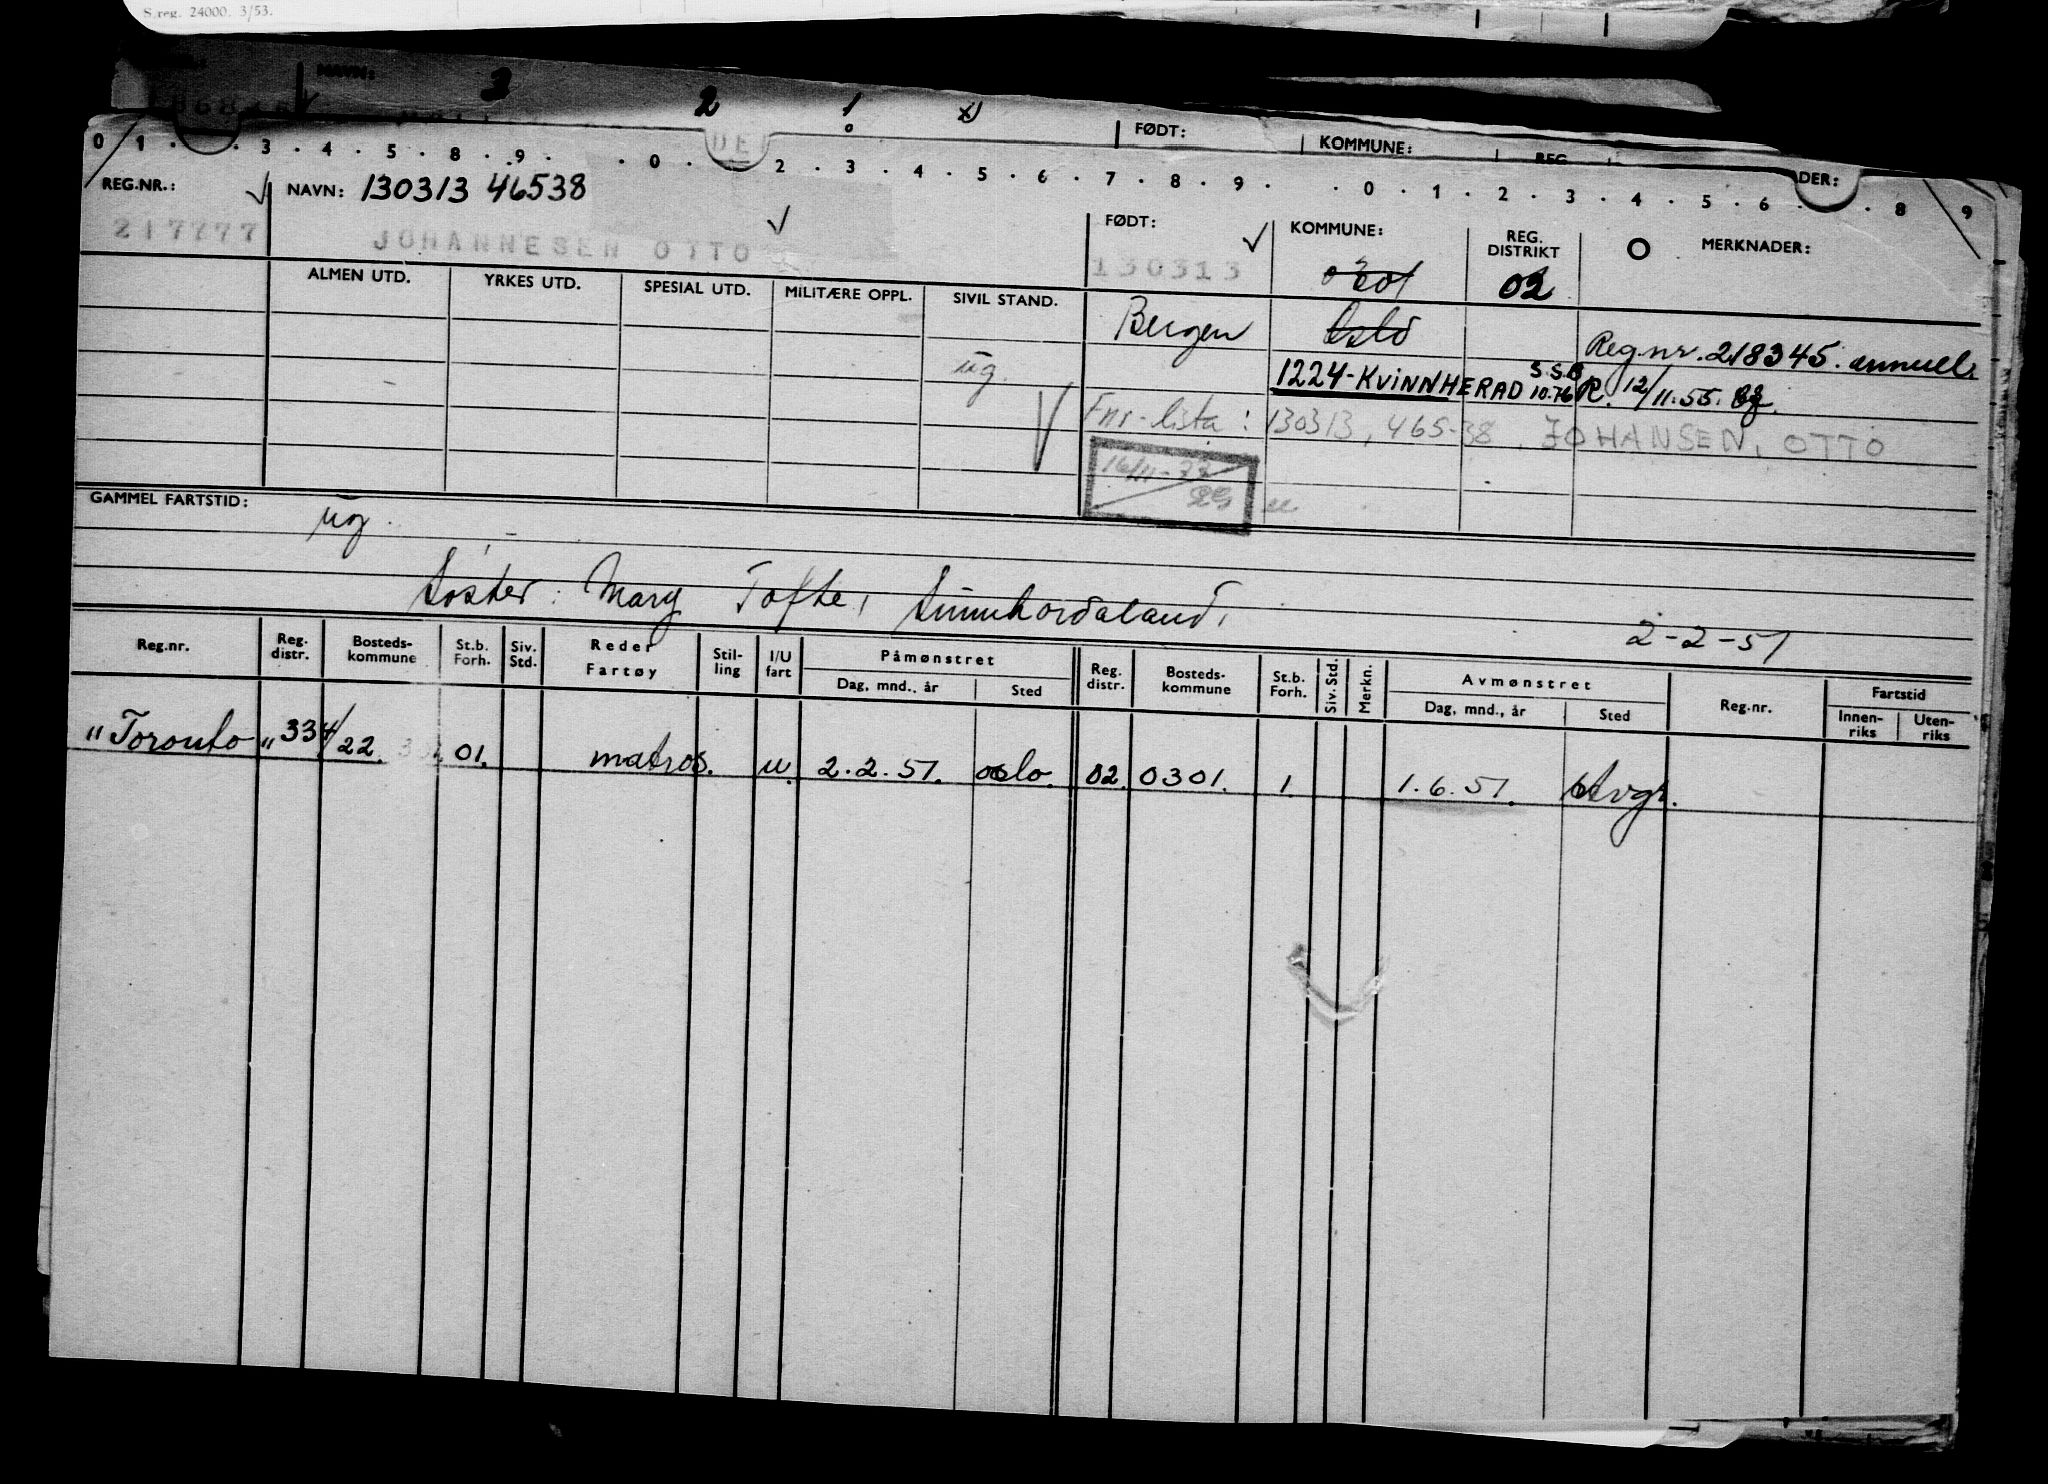 S.reg. 24000. 3/53.
NAVN: 3 2 1
FØDT: KOMMUNE: REG.
0 1 . . 3 . 4 . 5 . 8 . 9 . . 0 . . 2 . 3 . 4 . 5 . 6 . 7 . 8 . 9 . . 0 . 1 . 2 . 3 . 4 . 5 . 6 . . 8 9
DER:
REG.NR.: NAVN: 130313 46538 FØDT: KOMMUNE: REG. DISTRIKT MERKNADER:
217777 JOHANNESEN OTTO 130313 02
ALMEN UTD. YRKES UTD. SPESIAL UTD. MILITÆRE OPPL. SIVIL STAND.
Bergen Oslo Reg.nr. 218345 annull.
ug. 1224-KVINNHERAD S.S.B 10.76 R. 12/11.55.
Fnr-lista: 130313, 465-38, JOHANSEN, OTTO
16/11-77
GAMMEL FARTSTID: ug.
Søster: Mary Tofte, Sunnhordaland,
2-2-51
Reg.nr. Reg. distr. Bosteds-kommune St.b. Forh. Siv. Std. Reder Fartøy Stil-ling I/U fart Påmønstret Dag, mnd., år Sted Reg. distr. Bosteds-kommune St.b. Forh. Siv. Std. Merkn. Avmønstret Dag, mnd., år Sted Reg.nr. Fartstid Innen-riks Uten-riks
"Toronto" 334/22. 01. matros. u. 2.2.51. oslo. 02. 0301. 1. 1.6.51. Avgr.